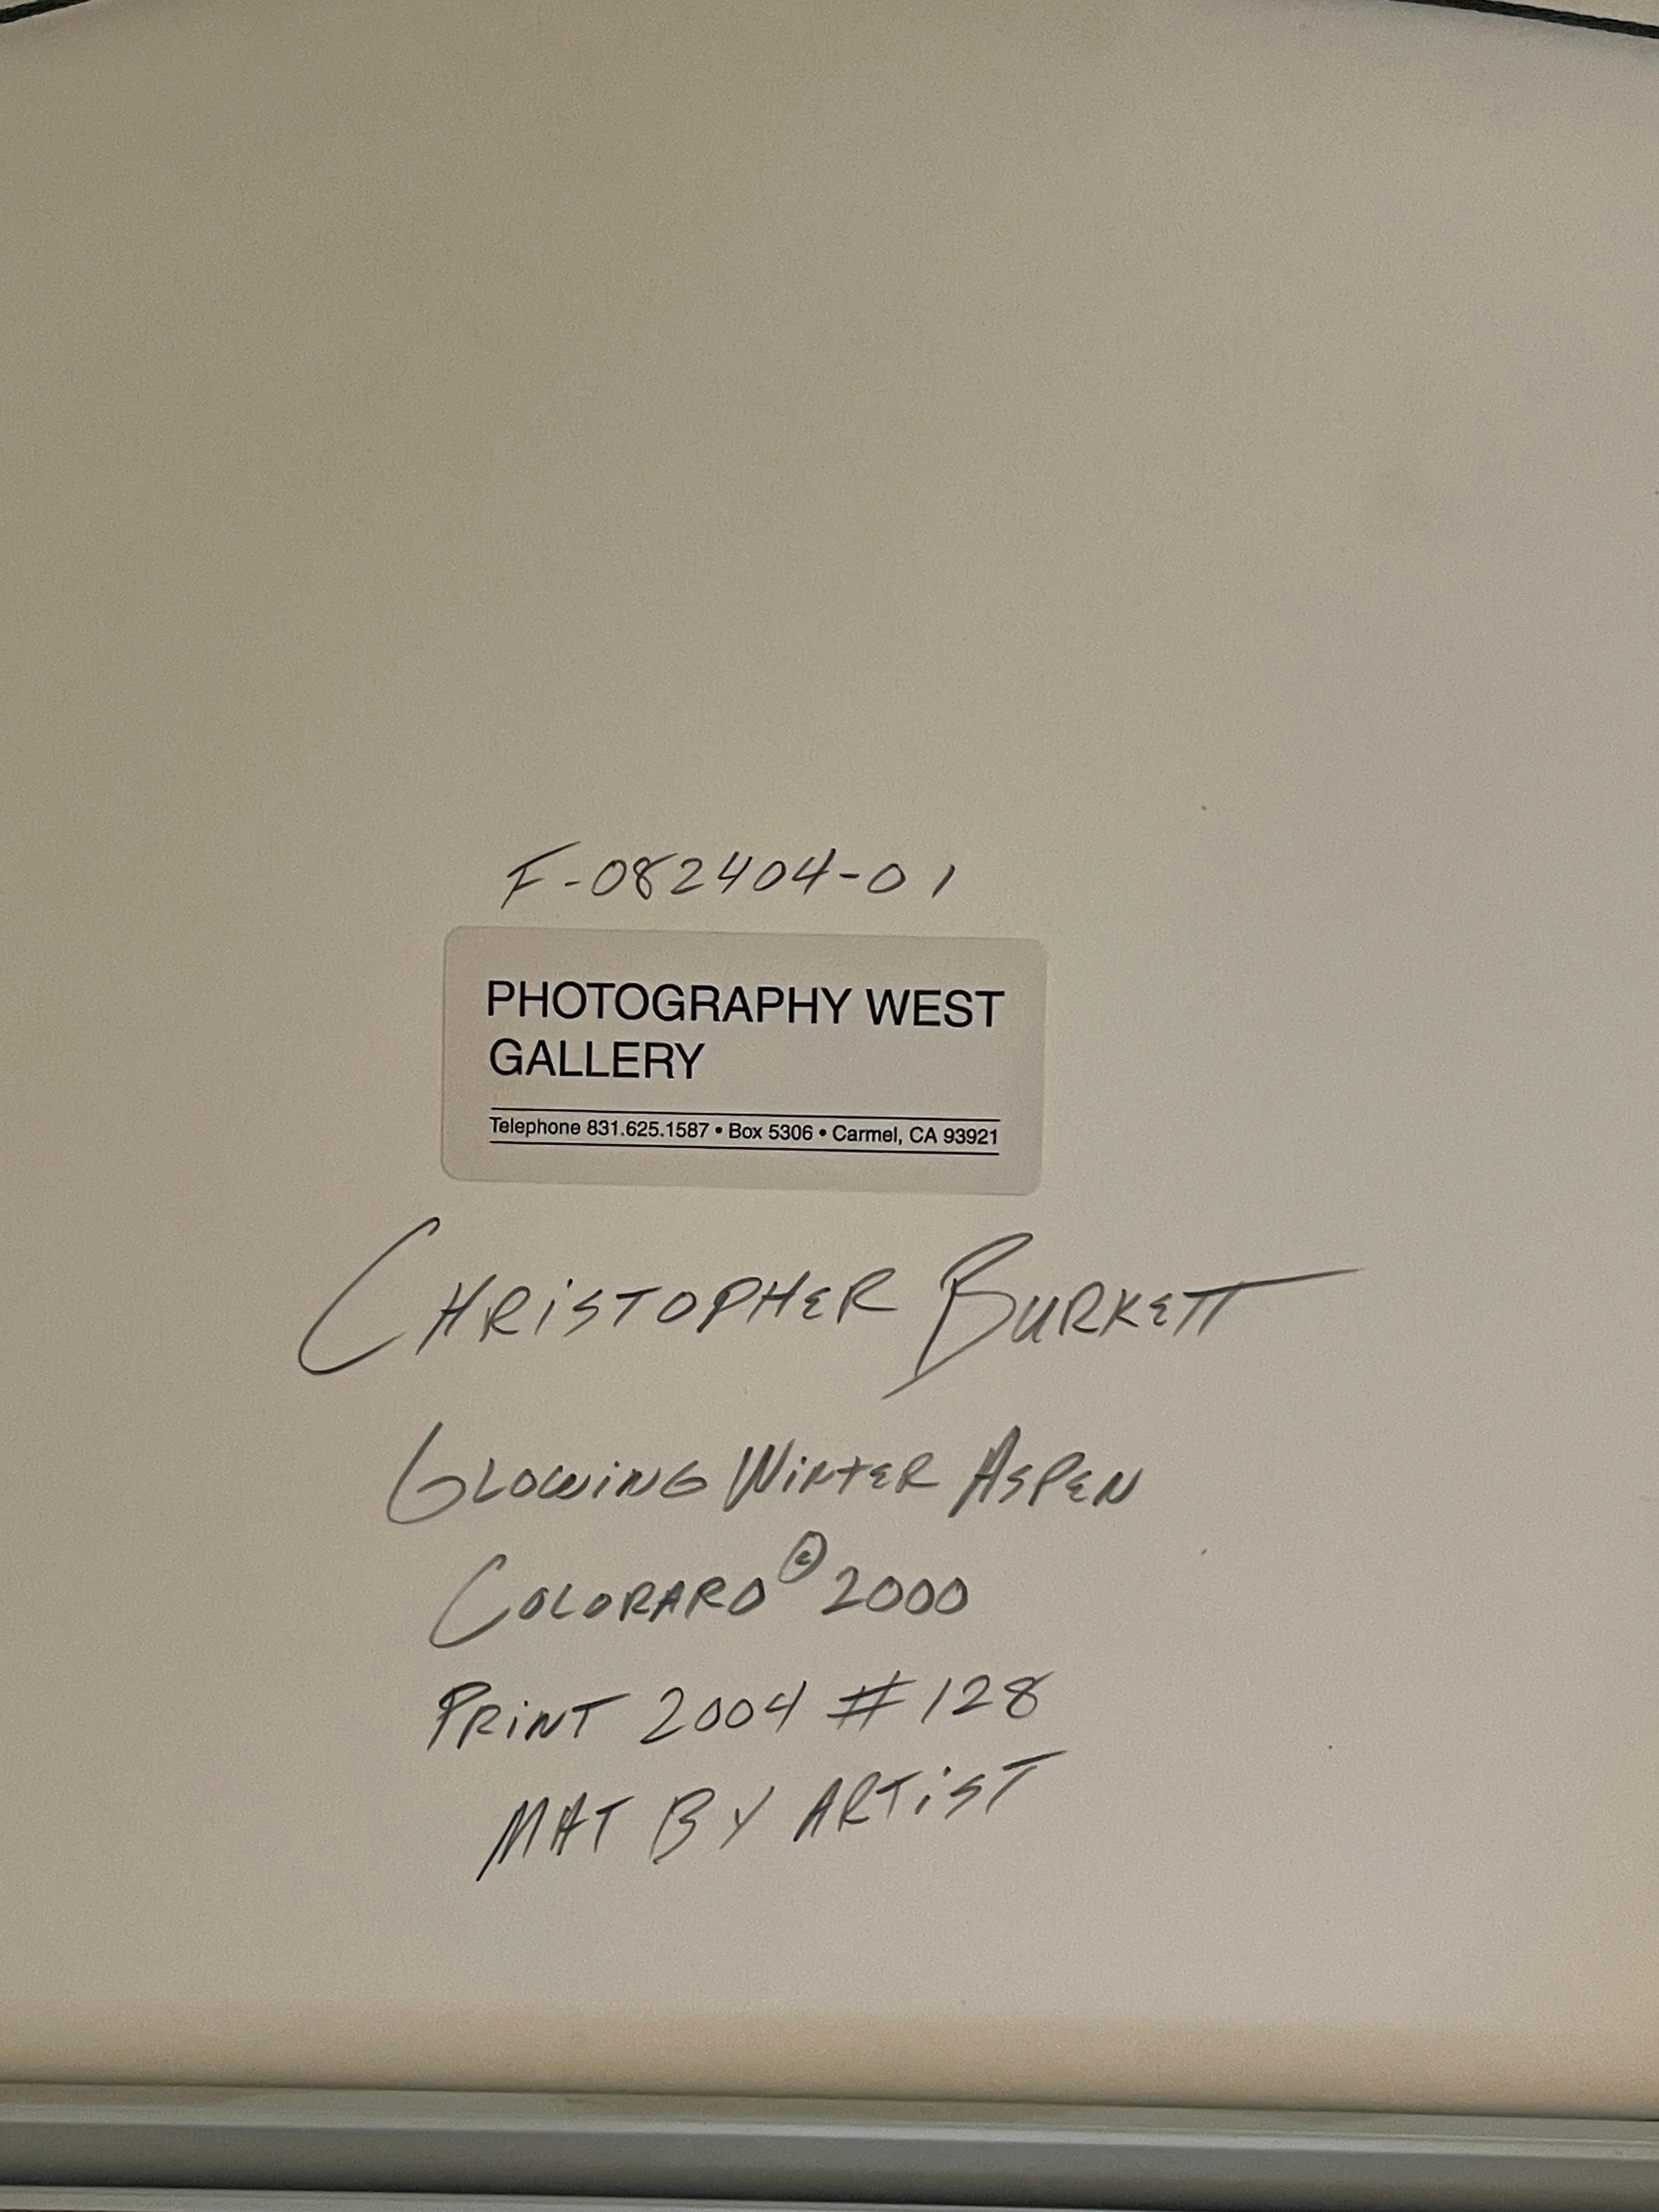 F-082404-01
PHOTOGRAPHY WEST
GALLERY
Telephone 831.625.1587 • Box 5306 • Carmel, CA 93921
CHRiSTOPHER BURKETT
GLOWiNG WiNTER ASPEN
COLORADO © 2000
PRiNT 2004 # 128
MAT BY ARTiST